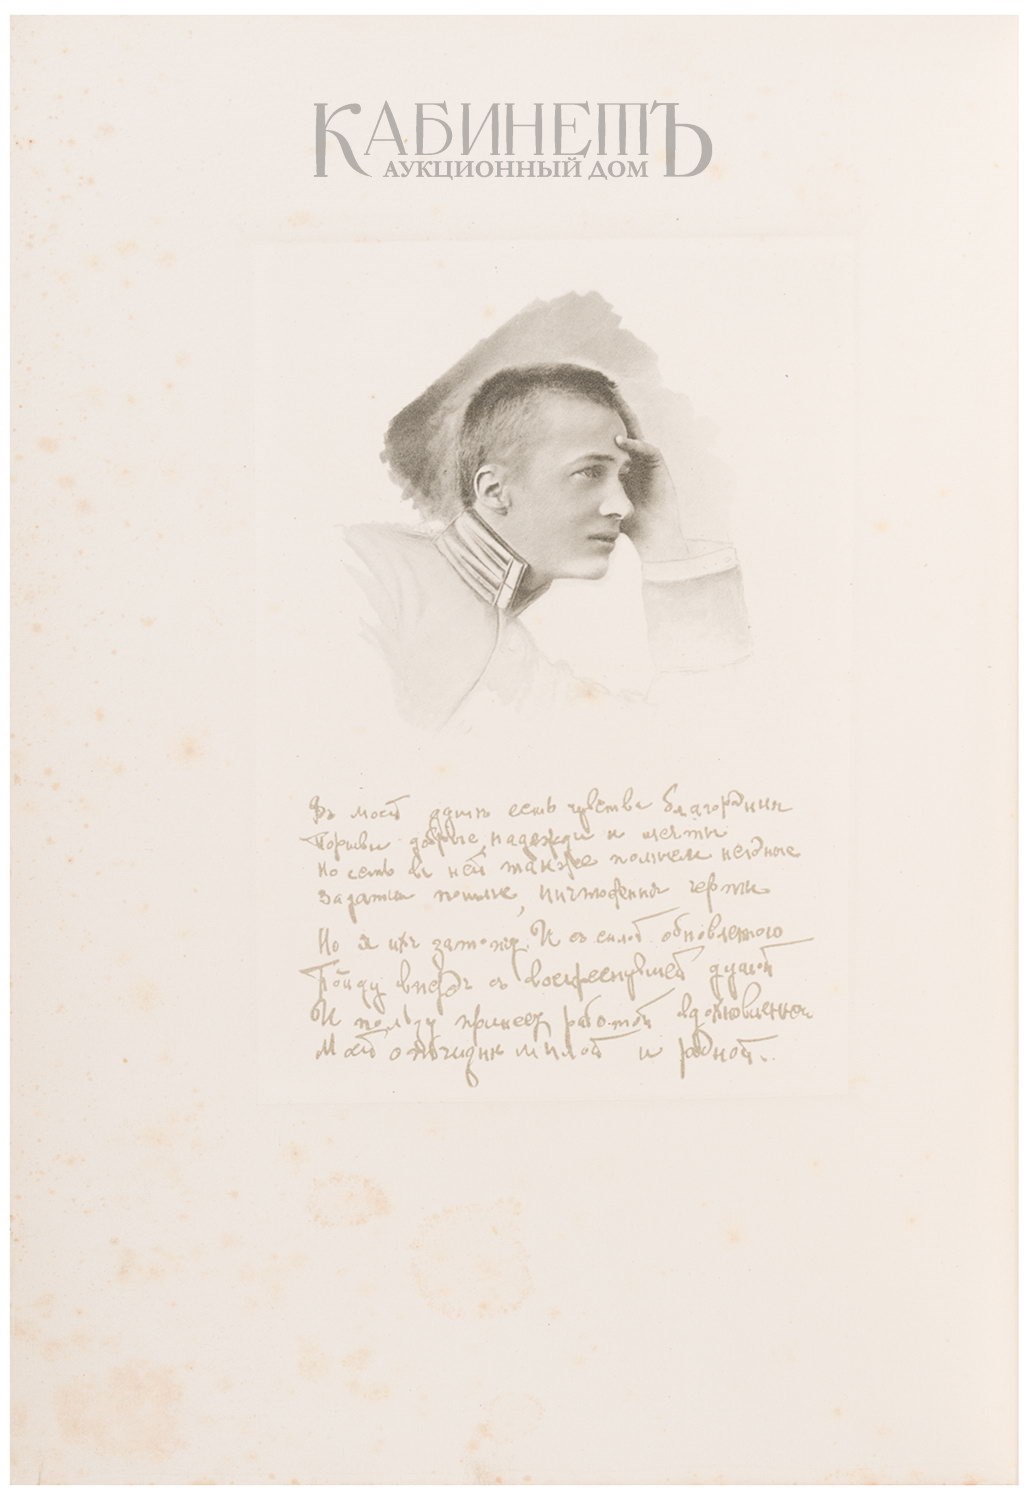 КАБИНЕТЪ
АУКЦИОННЫЙ ДОМ
Въ моей душѣ есть чувства благородныя
Порывы добрые, надежды и мечты
Но есть въ ней также помыслы негодные
Задатки пошлые, ничтожныя черты
Но я ихъ затопчу. И съ силой обновленною
Пойду впередъ съ воскреснувшей душой
И пользу принесу работой вдохновенною
Моей отчизнѣ милой и родной..